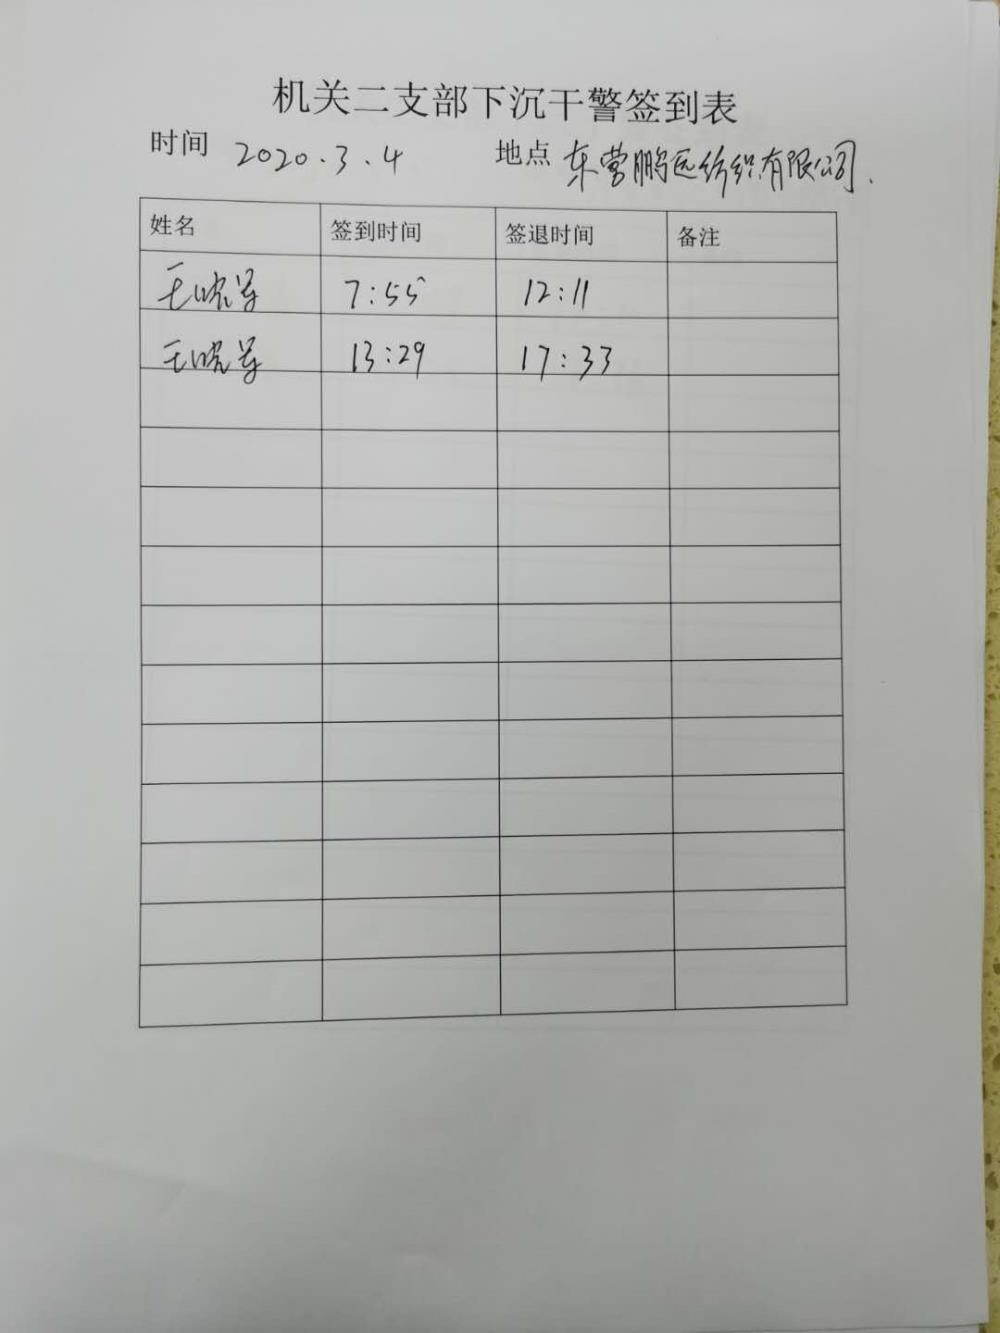 机关二支部下沉干警签到表
时间 2020.3.4 地点 东营鹏远纺织有限公司.
姓名 签到时间 签退时间 备注
王晓军 7:55 12:11
王晓军 13:29 17:33